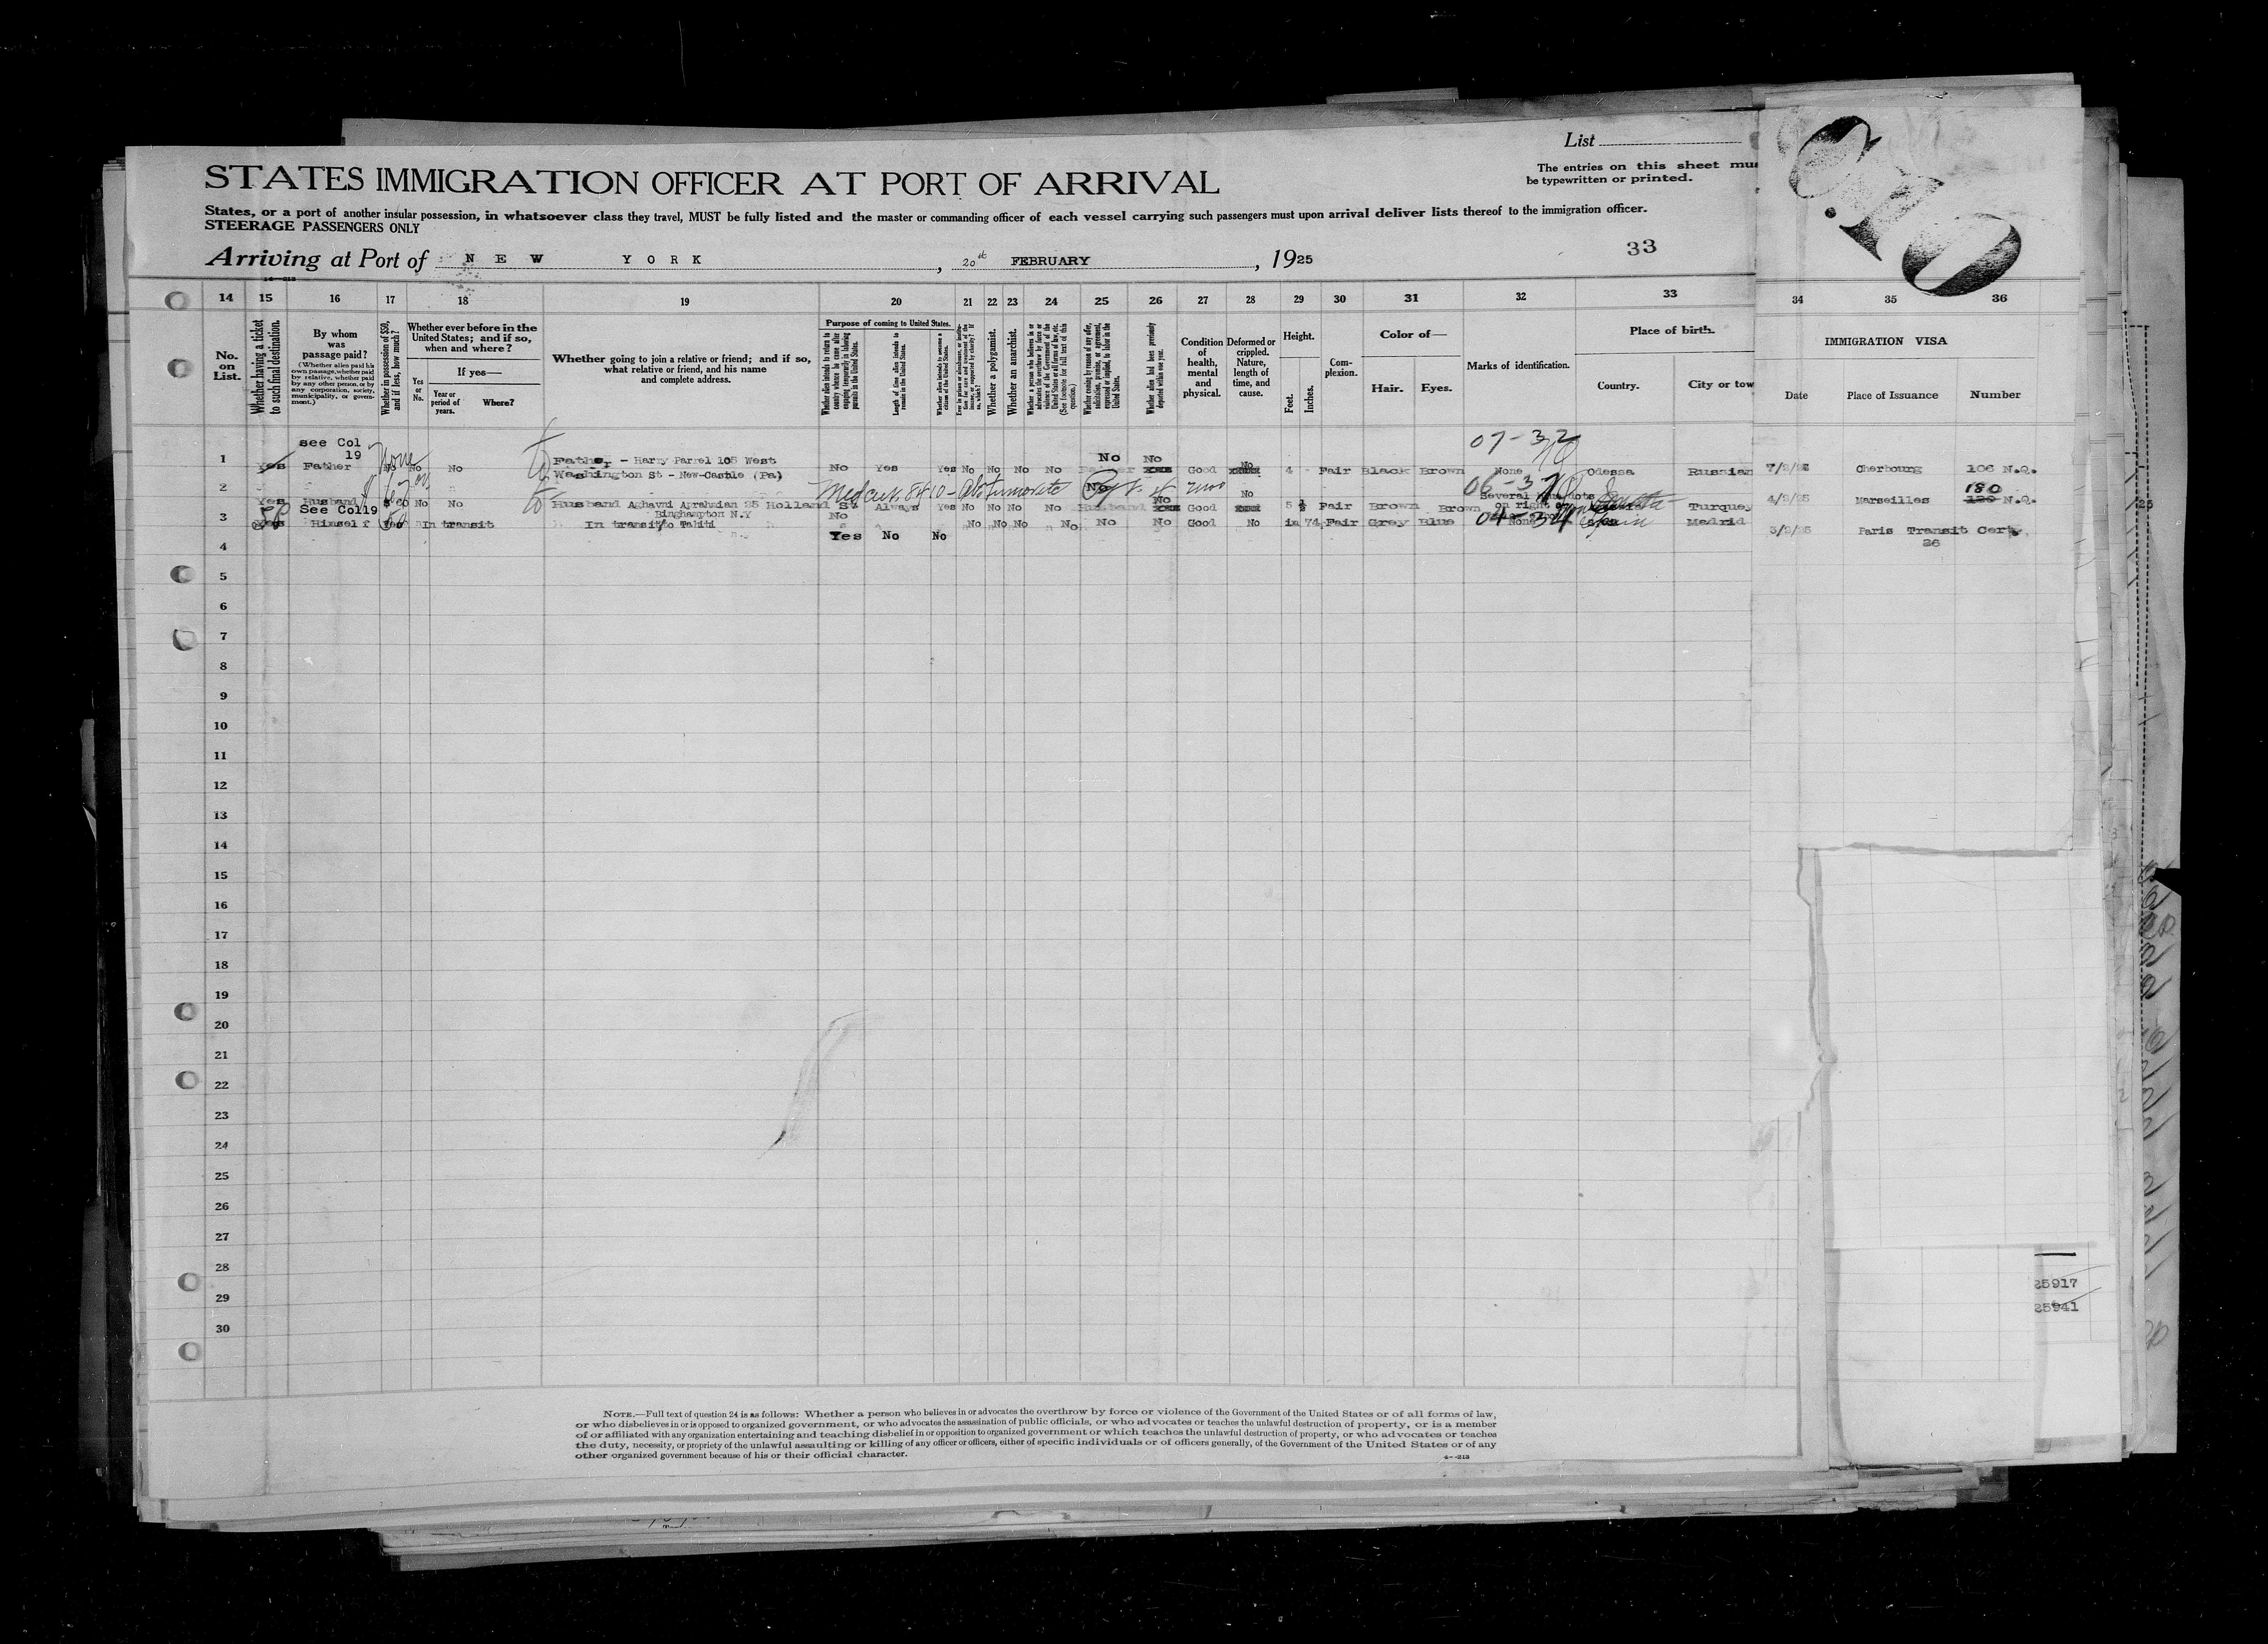 List
The entries on this sheet mus
be typewritten or printed.
STATES IMMIGRATION OFFICER AT PORT OF ARRIVAL
States, or a port of another insular possession, in whatsoever class they travel, MUST be fully listed and the master or commanding officer of each vessel carrying such passengers must upon arrival deliver lists thereof to the immigration officer.
STEERAGE PASSENGERS ONLY
33
Arriving at Port of NEW YORK, 20th FEBRUARY, 1925
14 15 16 17 18 19 20 21 22 23 24 25 26 27 28 29 30 31 32 33 34 35 36
No. on List.
Whether having a ticket to such final destination.
By whom was passage paid?
(Whether alien paid his own passage, whether paid by relative, whether paid by any other person, or by any corporation, society, municipality, or government.)
Whether in possession of $50, and if less, how much?
Whether ever before in the United States; and if so, when and where?
Yes or No.
If yes—
Year or period of years.
Where?
Whether going to join a relative or friend; and if so, what relative or friend, and his name and complete address.
Purpose of coming to United States.
Whether alien intends to return to country whence he came after engaging temporarily in laboring pursuits in the United States.
Length of time alien intends to remain in the United States.
Whether alien intends to become a citizen of the United States.
Whether a polygamist.
Whether an anarchist.
Whether coming by reason of any offer, solicitation, promise, or agreement, expressed or implied, to labor in the United States.
Whether alien had been previously deported within one year.
Condition of health, mental and physical.
Deformed or crippled. Nature, length of time, and cause.
Height.
Feet.
Inches.
Complexion.
Color of—
Hair.
Eyes.
Marks of identification.
Place of birth.
Country.
City or tow
IMMIGRATION VISA
Date
Place of Issuance
Number
see Col 19
None
07-32
No No
1 Yes Father No No No Father - Harry Parrel 105 West No Yes Yes No No No No Good No 4 Fair Black Brown None Odessa Russian Cherbourg 106 N.Q.
Washington St - New-Castle (Pa)
2 Med cert. 8410 No 180
Yes Husband No No Husband Aghavni Aprahmian 25 Holland St Always Yes No No No No Husband No Good No 5 ½ Fair Brown Brown Several Turquey 4/2/25 Marseilles N.Q.
See Col19
Binghampton N.Y
No
on right
3 Himself In transit In transit to Tahiti No No No No No No Good No Fair Grey Blue 04-34 None Spain Madrid 3/2/25 Paris Transit Cert.
26
4 Yes No No
5
6
7
8
9
10
11
12
13
14
15
16
17
18
19
20
21
22
23
24
25
26
27
28
29
30
25917
25941
NOTE.—Full text of question 24 is as follows: Whether a person who believes in or advocates the overthrow by force or violence of the Government of the United States or of all forms of law,
or who disbelieves in or is opposed to organized government, or who advocates the assassination of public officials, or who advocates or teaches the unlawful destruction of property, or is a member
of or affiliated with any organization entertaining and teaching disbelief in or opposition to organized government or which teaches the unlawful destruction of property, or who advocates or teaches
the duty, necessity, or propriety of the unlawful assaulting or killing of any officer or officers, either of specific individuals or of officers generally, of the Government of the United States or of any
other organized government because of his or their official character.